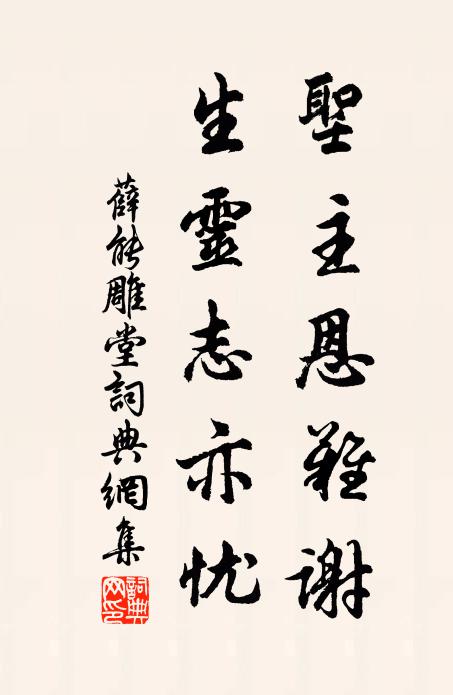 聖主恩難謝
生靈志亦忧
薛能雕堂詞典網集
詞典網印